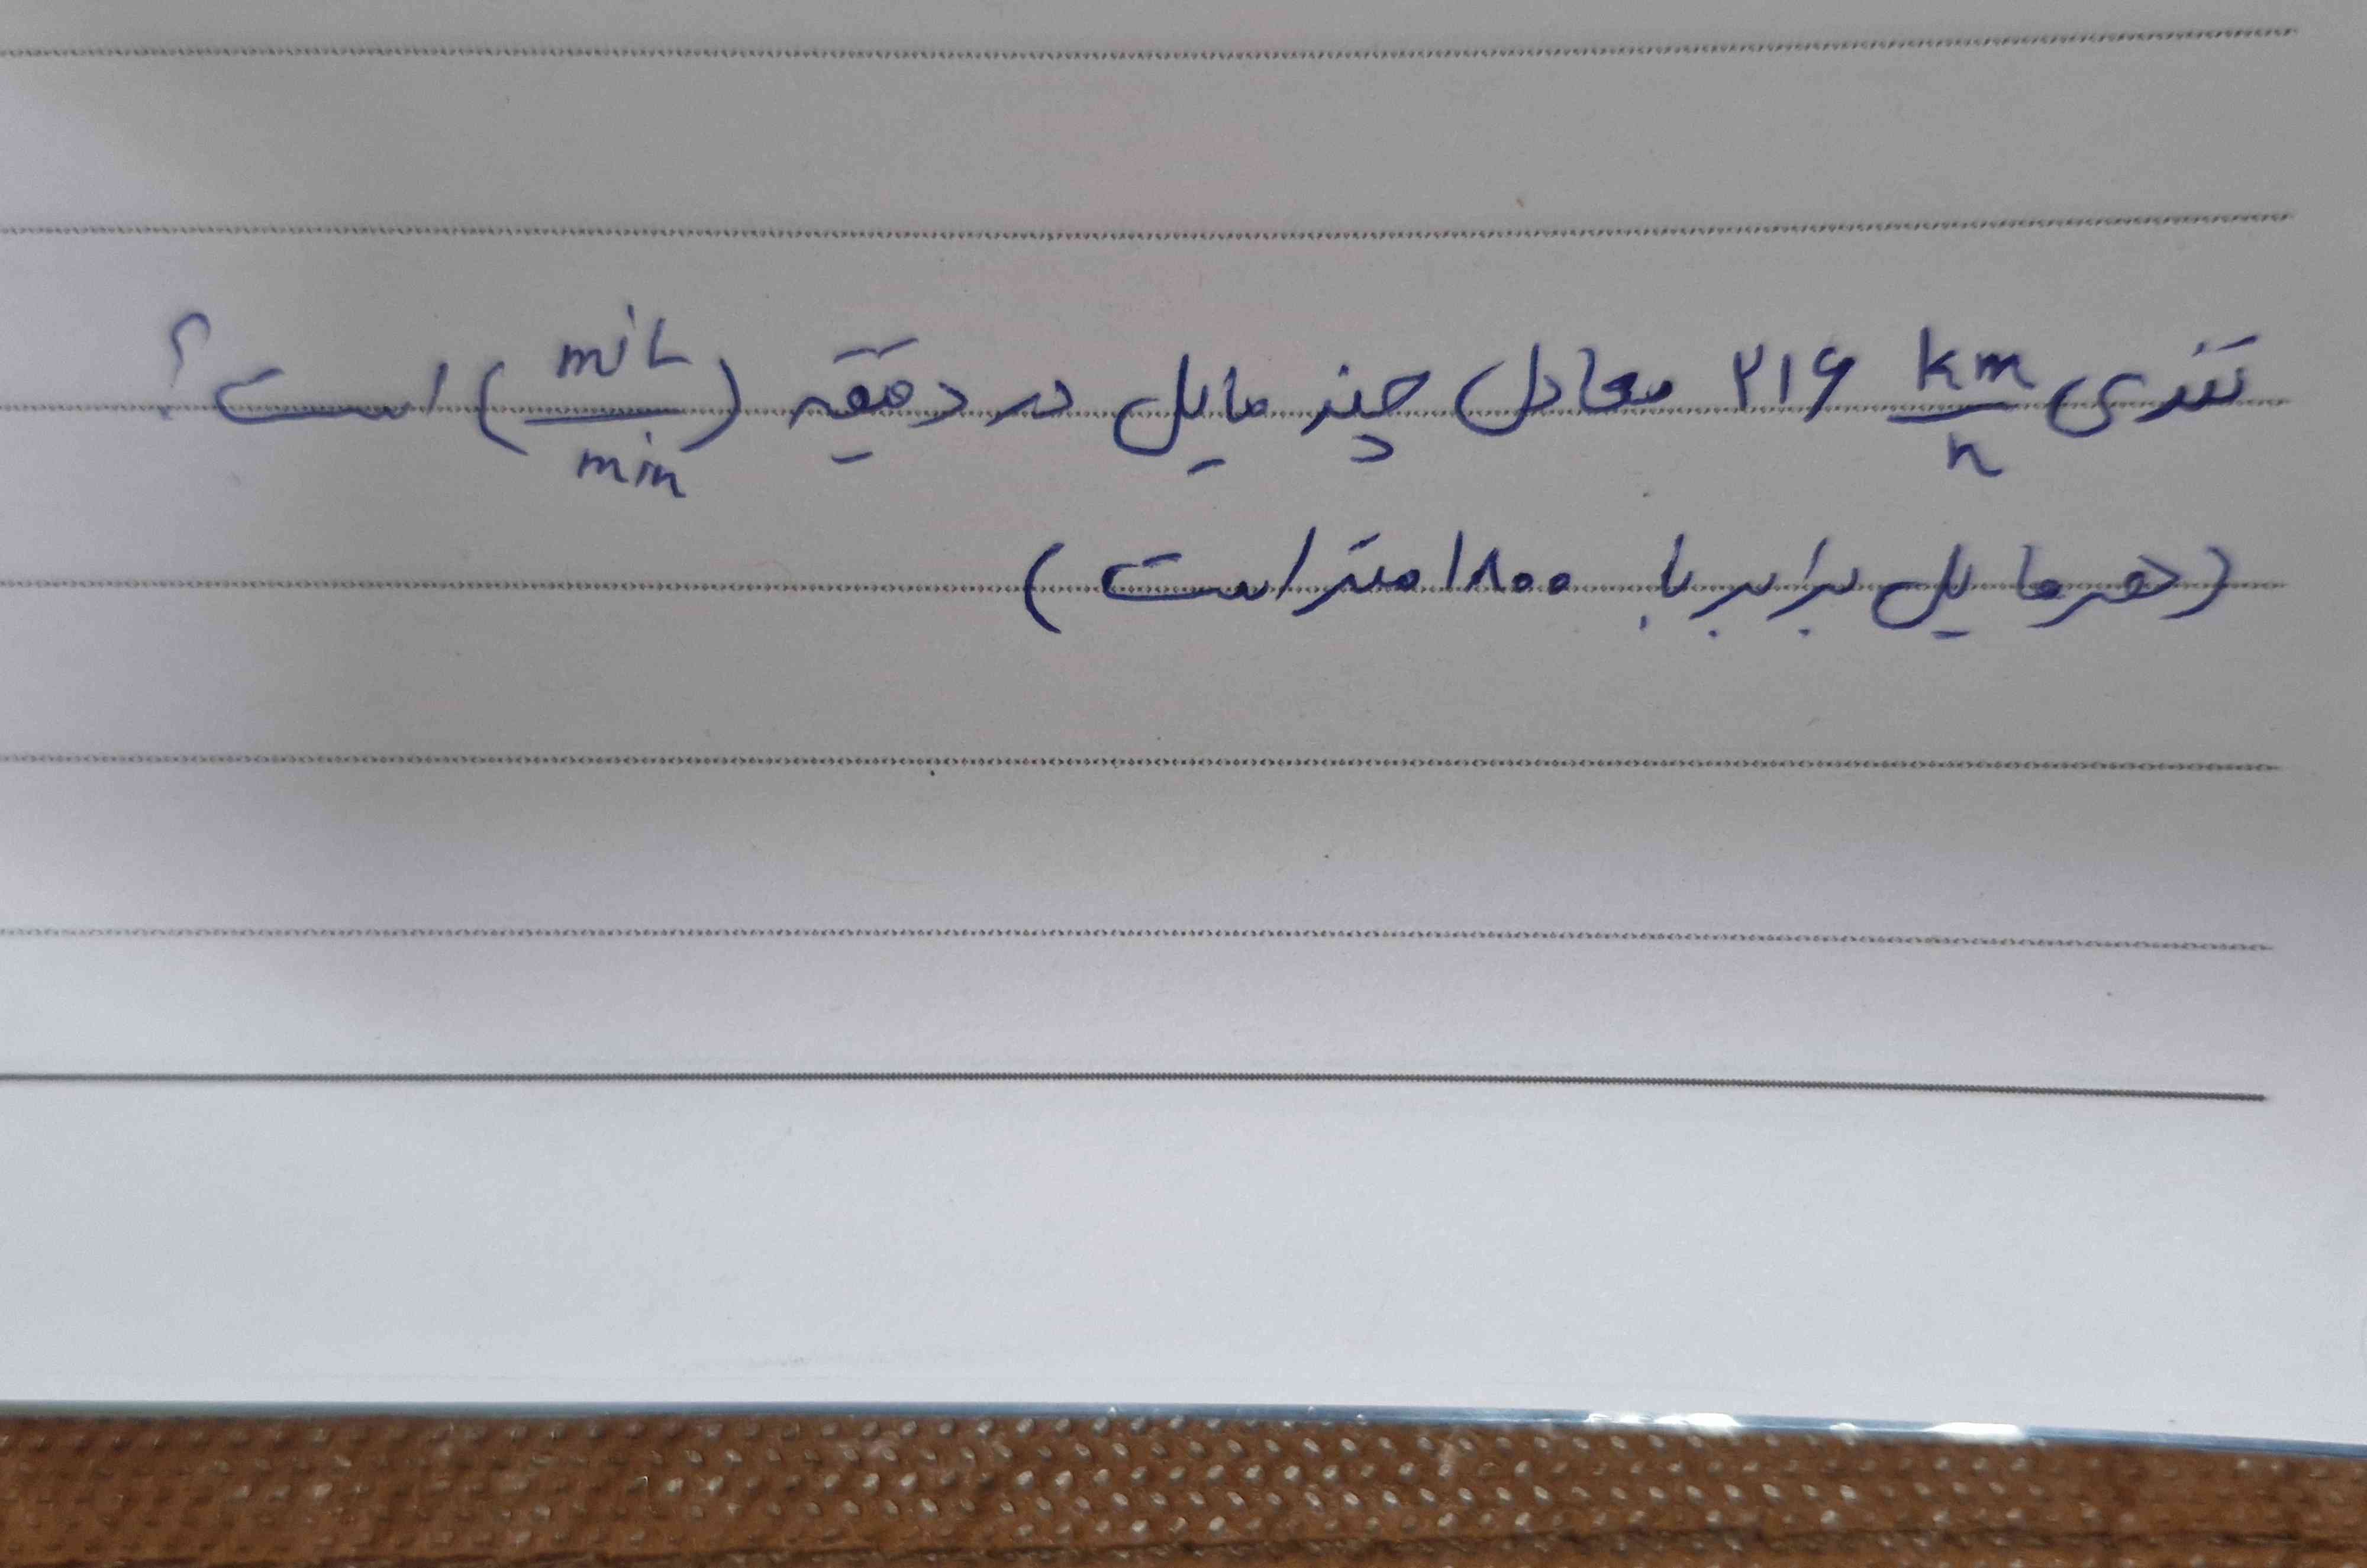 تندی km/h ۲۱۶ معادل چند مایل در دقیقه (mil/min) است؟
(هر مایل برابر با ۱۸۰۰ متر است)